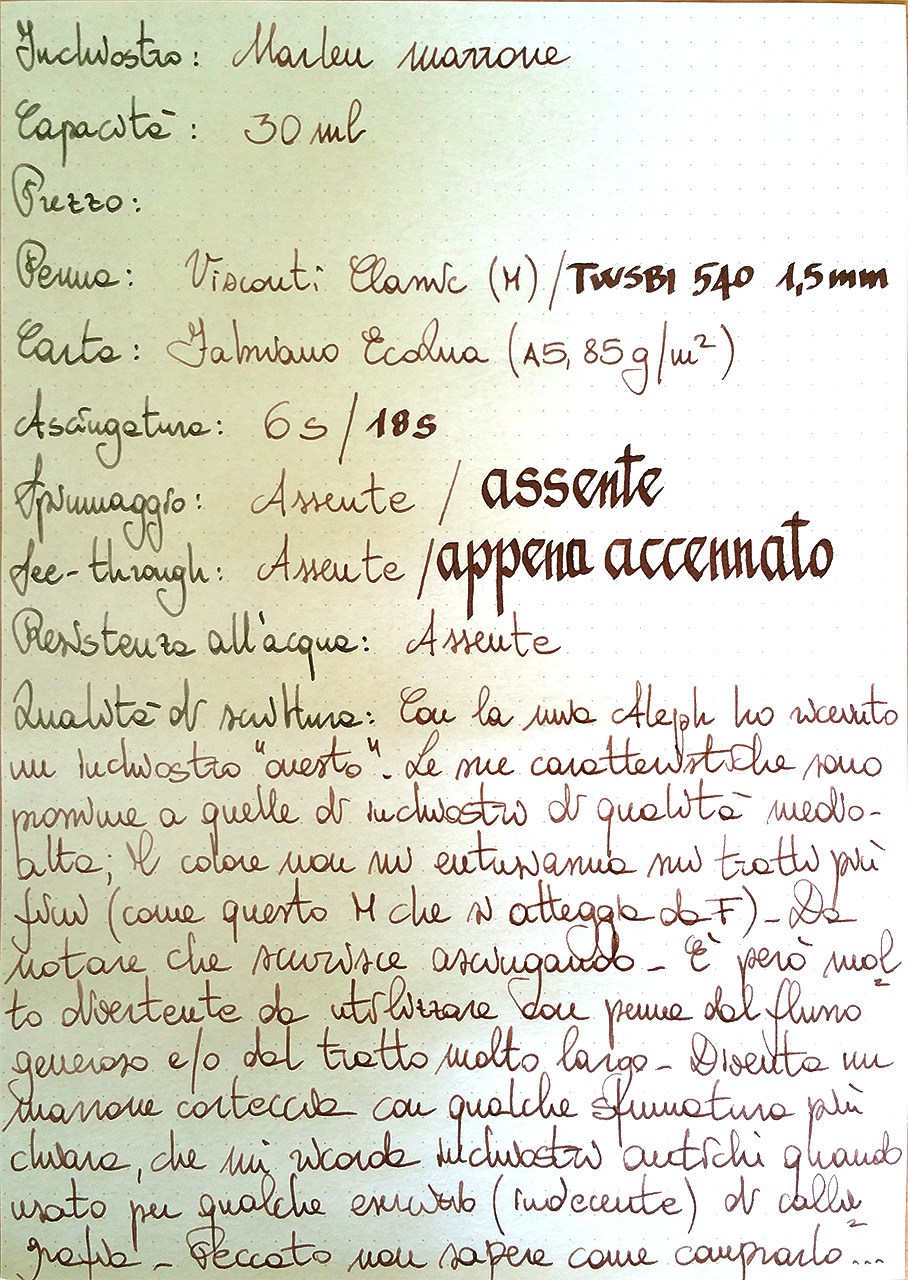 Inchiostro: Marlen marrone
Capacità: 30 ml
Prezzo:
Penna: Visconti Classic (M) / TWSBI 540 1,5mm
Carta: Fabriano EcoQua (A5, 85g/m²)
Asciugatura: 6s / 18s
Spiumaggio: Assente / assente
See-through: Assente / appena accennato
Resistenza all'acqua: Assente
Qualità di scrittura: Con la mia Aleph ho ricevuto
un inchiostro "onesto". Le sue caratteristiche sono
prossime a quelle di inchiostri di qualità medio-
alta; il colore non mi entusiasma sui tratti più
fini (come questo M che si atteggia da F) - Da
notare che scurisce asciugando - È però mol
to divertente da utilizzare con penne dal flusso
generoso e/o dal tratto molto largo - Diventa un
marrone corteccia con qualche sfumatura più
chiara, che mi ricorda inchiostri antichi quando
usato per qualche esercizio (indecente) di calli
grafia - Peccato non sapere come comprarlo...